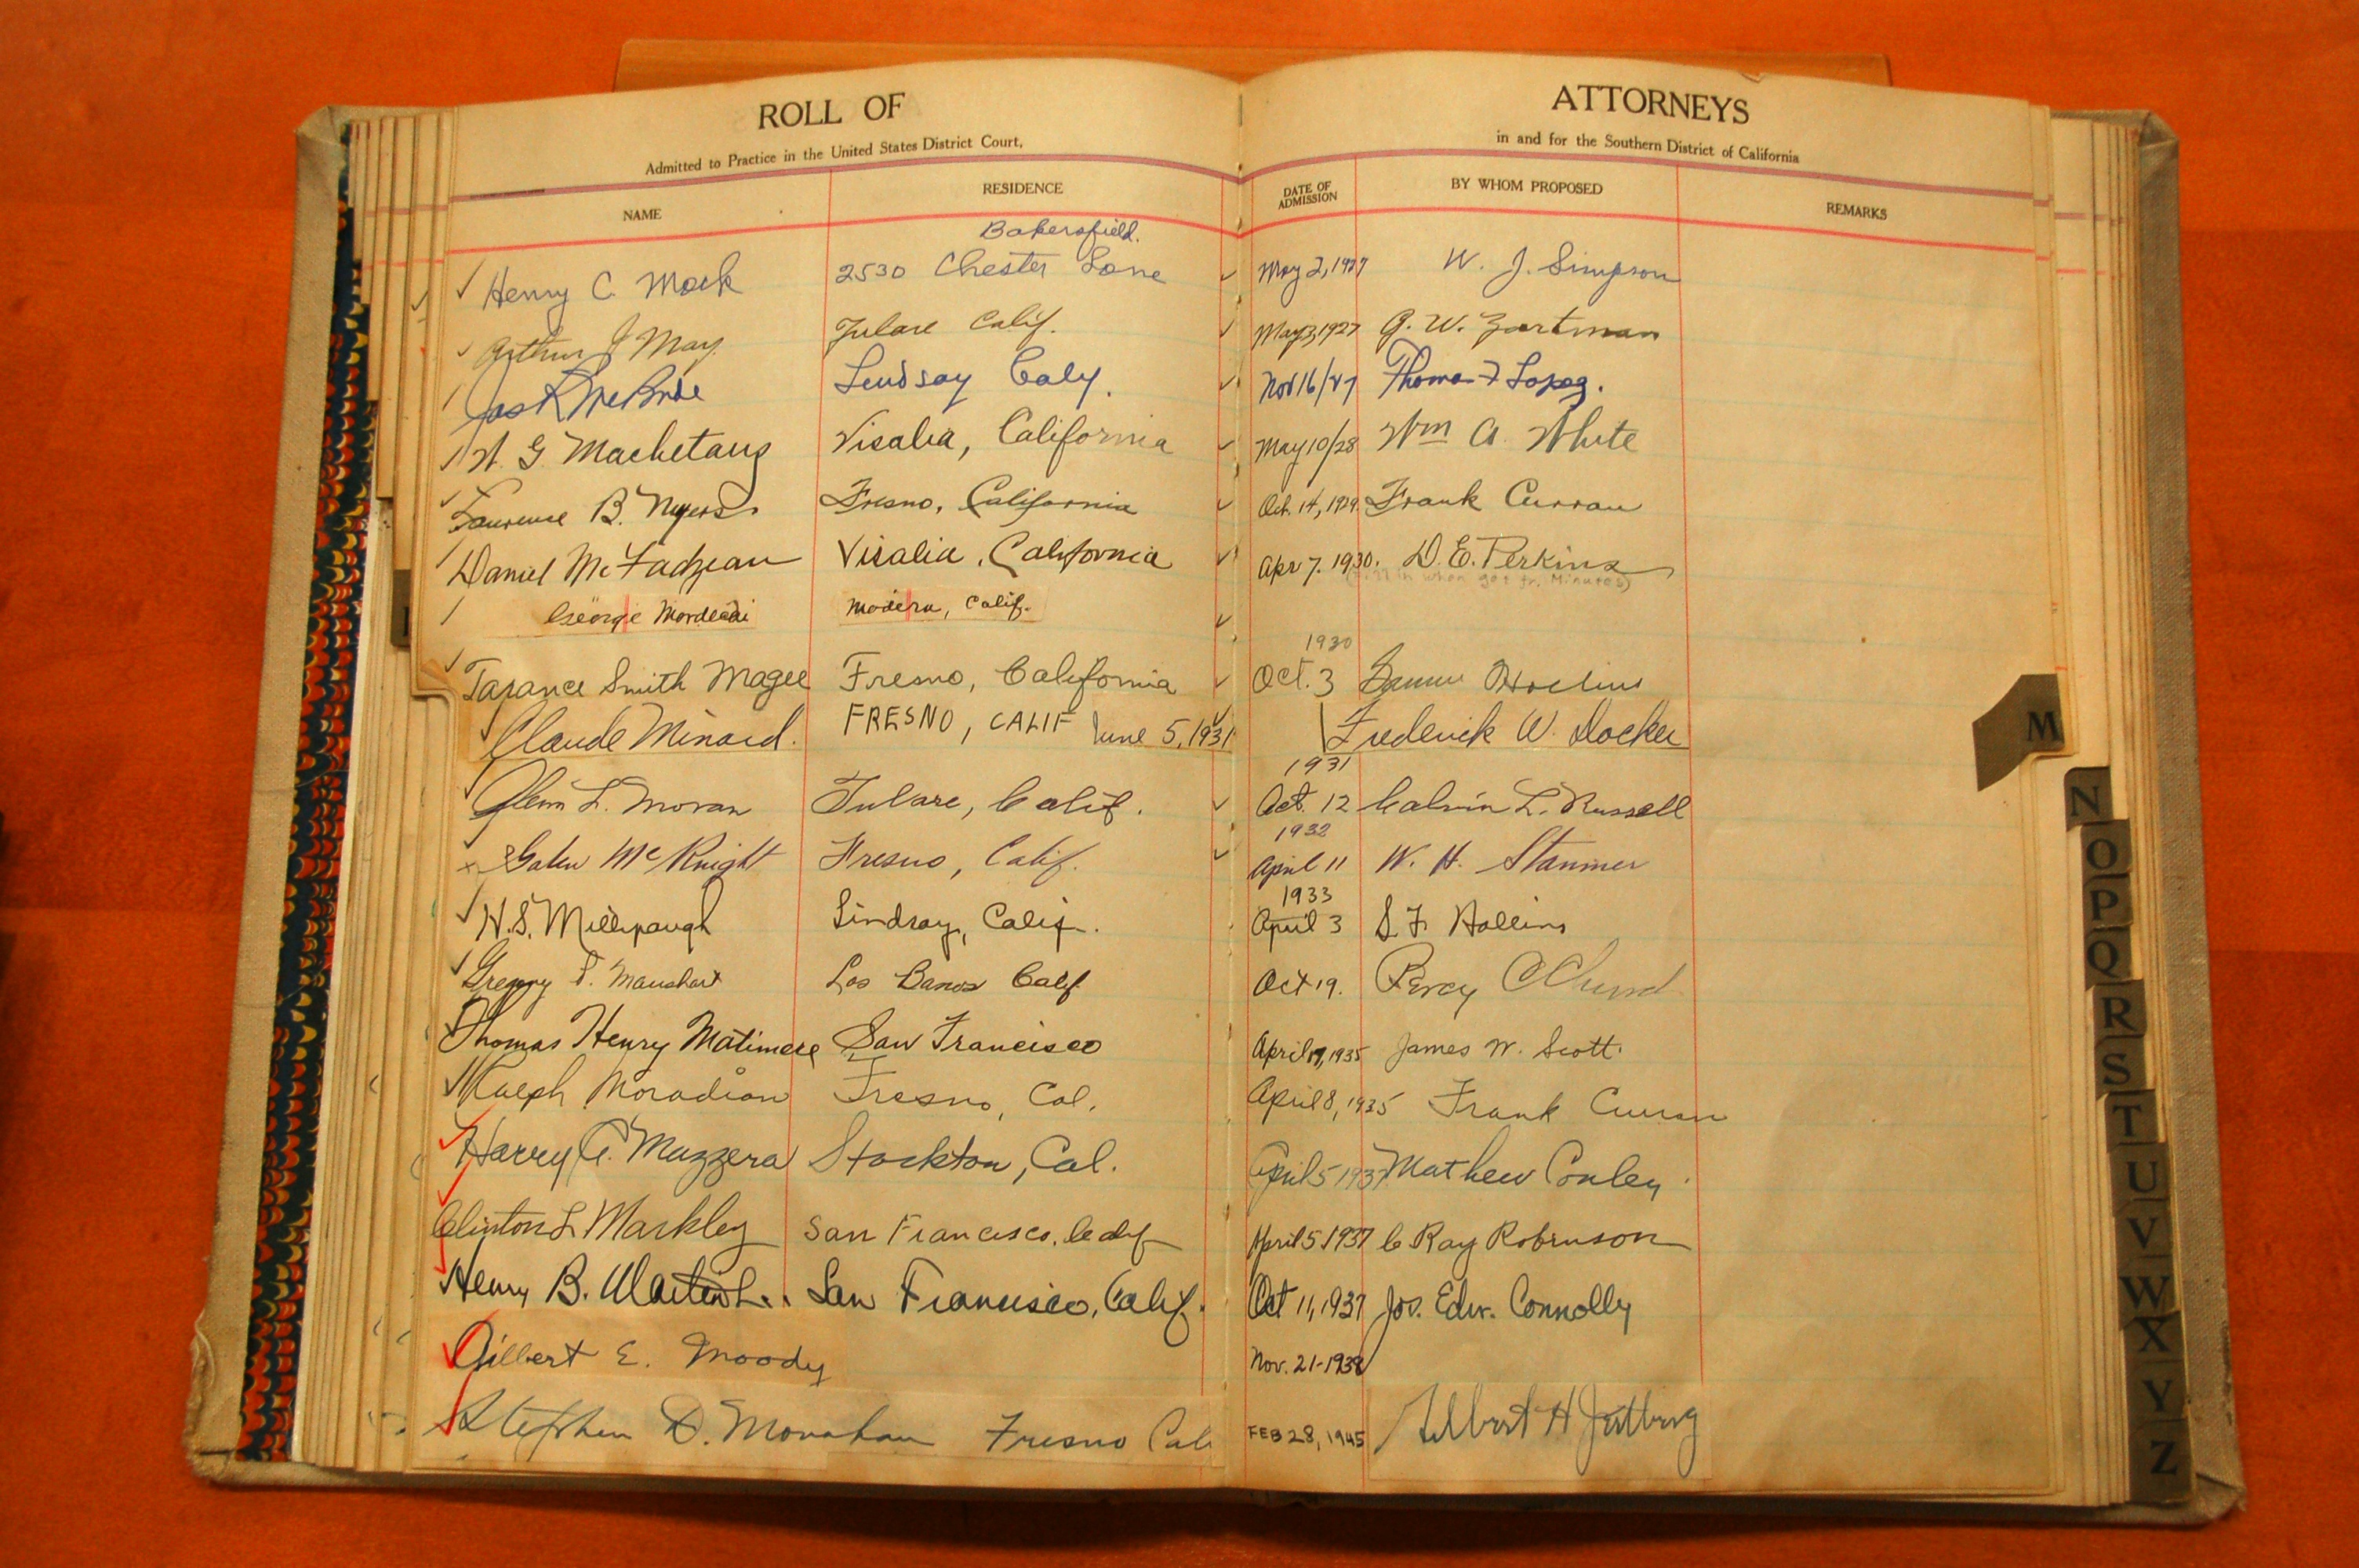 ROLL OF ATTORNEYS
Admitted to Practice in the United States District Court, in and for the Southern District of California
NAME RESIDENCE DATE OF ADMISSION BY WHOM PROPOSED REMARKS
Bakersfield.
Henry C. Mack 2530 Chester Lane May 2, 1927 W. J. Simpson
Arthur J May Tulare Calif. May 3, 1927 G. W. Zartman
Jas K McBride Lindsay Caly. Nov 16/27 Thomas F Lopez.
G Machetanz Visalia, California May 10/28 Wm A. White
Laurence B. Myers Fresno, California Oct. 14, 1929 Frank Curran
Daniel McFadzean Visalia, California Apr 7. 1930. D. E. Perkins
in when get fr. Minutes)
George Mordecai Madera, Calif.
1930
Tarance Smith Magee Fresno, California Oct. 3
Claude Minard. FRESNO, CALIF June 5, 1931 Frederick W. Docker
1931
Glenn L. Moran Tulare, Calif. Oct. 12 Calvin L. Russell
1932
Galen McKnight Fresno, Calif. April 11 W. H. Stammer
1933
H. S. Millspaugh Lindsay, Calif. April 3 S. F. Hollins
Gregory P. Maushart Los Banos Calif Oct 19. Percy C Church
Thomas Henry San Francisco April 1935 James W. Scott.
Ralph Moradian Fresno, Cal. April 8, 1935 Frank Curran
Harry A. Mazzera Stockton, Cal. April 5 1937 Mathew Conley.
Clinton L Markley San Francisco, Calif April 5 1937 C Ray Robinson
Henry B. San Francisco, Calif. Oct 11, 1937 Jos. Edw. Connolly
Gilbert E. Moody Nov. 21-1938
Stephen D. Monahan Fresno Cal FEB 28, 1945
M
N
O
P
Q
R
S
T
U
V
W
X
Y
Z